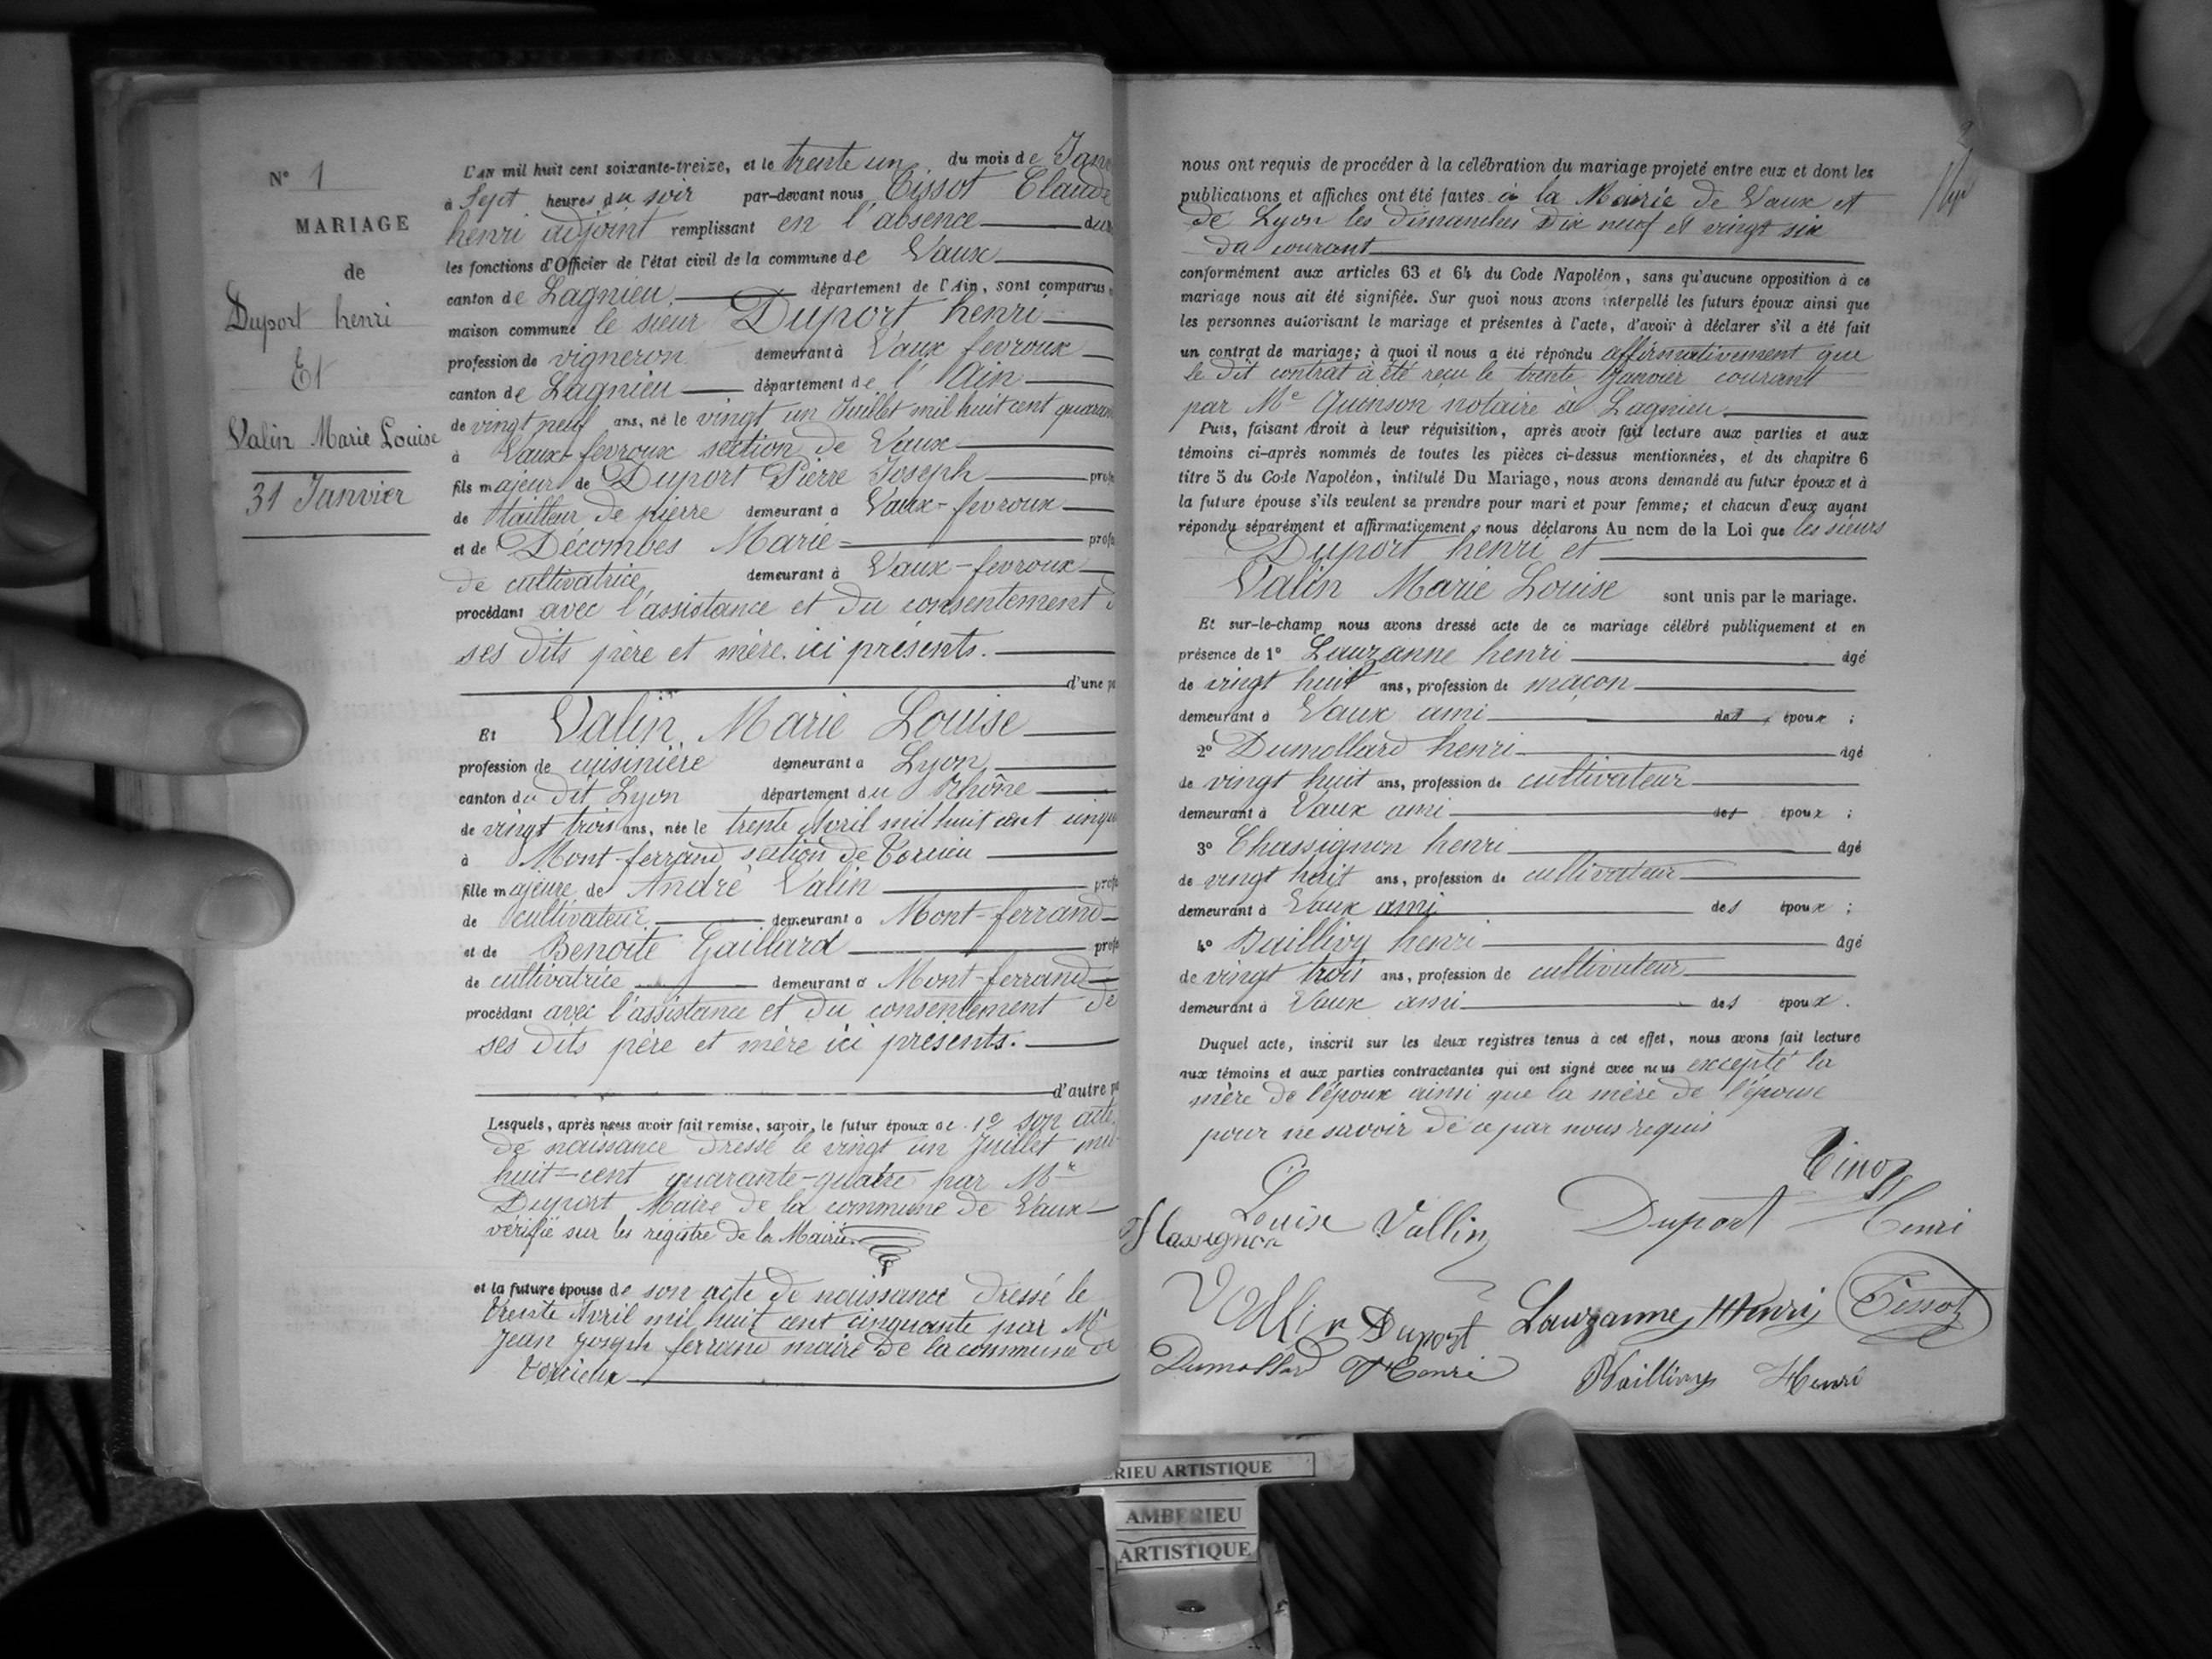 N° 1
MARIAGE
de
Duport henri
Et
Valin Marie Louise
31 Janvier
L'AN mil huit cent soixante-treize, et le trente un du mois de Janv
à Sept heures du soir par-devant nous Tissot Claude
henri adjoint remplissant en l'absence du
les fonctions d'Officier de l'état civil de la commune de Vaux
canton de Lagnieu, département de l'Ain, sont comparus
maison commune le sieur Duport henri
profession de vigneron demeurant à Vaux fevroux
canton de Lagnieu département de l'Ain
de vingt neuf ans, né le vingt un Juillet mil huit cent quaran
à Vaux-fevroux section de Vaux
fils majeur de Duport Pierre Joseph prof
de tailleur de pierre demeurant à Vaux-fevroux
et de Décombes Marie profe
de cultivatrice demeurant à Vaux-fevroux
procédant avec l'assistance et du consentement d
ses dits père et mère ici présents.
d'une p
Et Valin Marie Louise
profession de cuisinière demeurant a Lyon
canton du dit Lyon département du Rhône
de vingt trois ans, née le trente Avril mil huit cent cinqu
à Mont-ferrand section de Torcieu
fille majeure de André Valin profe
de cultivateur demeurant a Mont-ferrand
et de Benoite Gaillard profe
de cultivatrice demeurant a Mont-ferrand
procédant avec l'assistance et du consentement de
ses dits père et mère ici présents.
d'autre p
Lesquels, après nous avoir fait remise, savoir, le futur époux de 1° son acte
de naissance dressé le vingt un Juillet mil
huit-cent quarante-quatre par Mr
Duport Maire de la commune de Vaux
vérifié sur les registre de la Mairie.
et la future épouse de son acte de naissance dressé le
trente Avril mil huit cent cinquante par Mr
Jean Joseph ferrand maire de la commune de
Torcieu
nous ont requis de procéder à la célébration du mariage projeté entre eux et dont les
publications et affiches ont été faites à la Mairie de Vaux et
de Lyon les dimanches dix neuf et vingt six
du courant
conformément aux articles 63 et 64 du Code Napoléon, sans qu'aucune opposition à ce
mariage nous ait été signifiée. Sur quoi nous avons interpellé les futurs époux ainsi que
les personnes autorisant le mariage et présentes à l'acte, d'avoir à déclarer s'il a été fait
un contrat de mariage; à quoi il nous a été répondu affirmativement que
le dit contrat à été reçu le trente Janvier courant
par Me Quinson notaire à Lagnieu
Puis, faisant droit à leur réquisition, après avoir fait lecture aux parties et aux
témoins ci-après nommés de toutes les pièces ci-dessus mentionnées, et du chapitre 6
titre 5 du Code Napoléon, intitulé Du Mariage, nous avons demandé au futur époux et à
la future épouse s'ils veulent se prendre pour mari et pour femme; et chacun d'eux ayant
répondu séparément et affirmativement, nous déclarons Au nom de la Loi que les sieurs
Duport henri et
Valin Marie Louise sont unis par le mariage.
Et sur-le-champ nous avons dressé acte de ce mariage célébré publiquement et en
présence de 1° Lauzanne henri âgé
de vingt huit ans, profession de maçon
demeurant à Vaux ami des époux ;
2° Dumollard henri âgé
de vingt huit ans, profession de cultivateur
demeurant à Vaux ami des époux ;
3° Chassignon henri âgé
de vingt huit ans, profession de cultivateur
demeurant à Vaux ami des époux ;
4° Baillivy henri âgé
de vingt trois ans, profession de cultivateur
demeurant à Vaux ami des époux.
Duquel acte, inscrit sur les deux registres tenus à cet effet, nous avons fait lecture
aux témoins et aux parties contractantes qui ont signé avec nous excepté la
mère de l'époux ainsi que la mère de l'épouse
pour ne savoir de ce par nous requis
Louise Vallin Duport Henri
Chassignon
Vallin Duport Lauzanne Henri Tissot
Dumollard Henri Baillivy Henri
ERIEU ARTISTIQUE
AMBERIEU
ARTISTIQUE